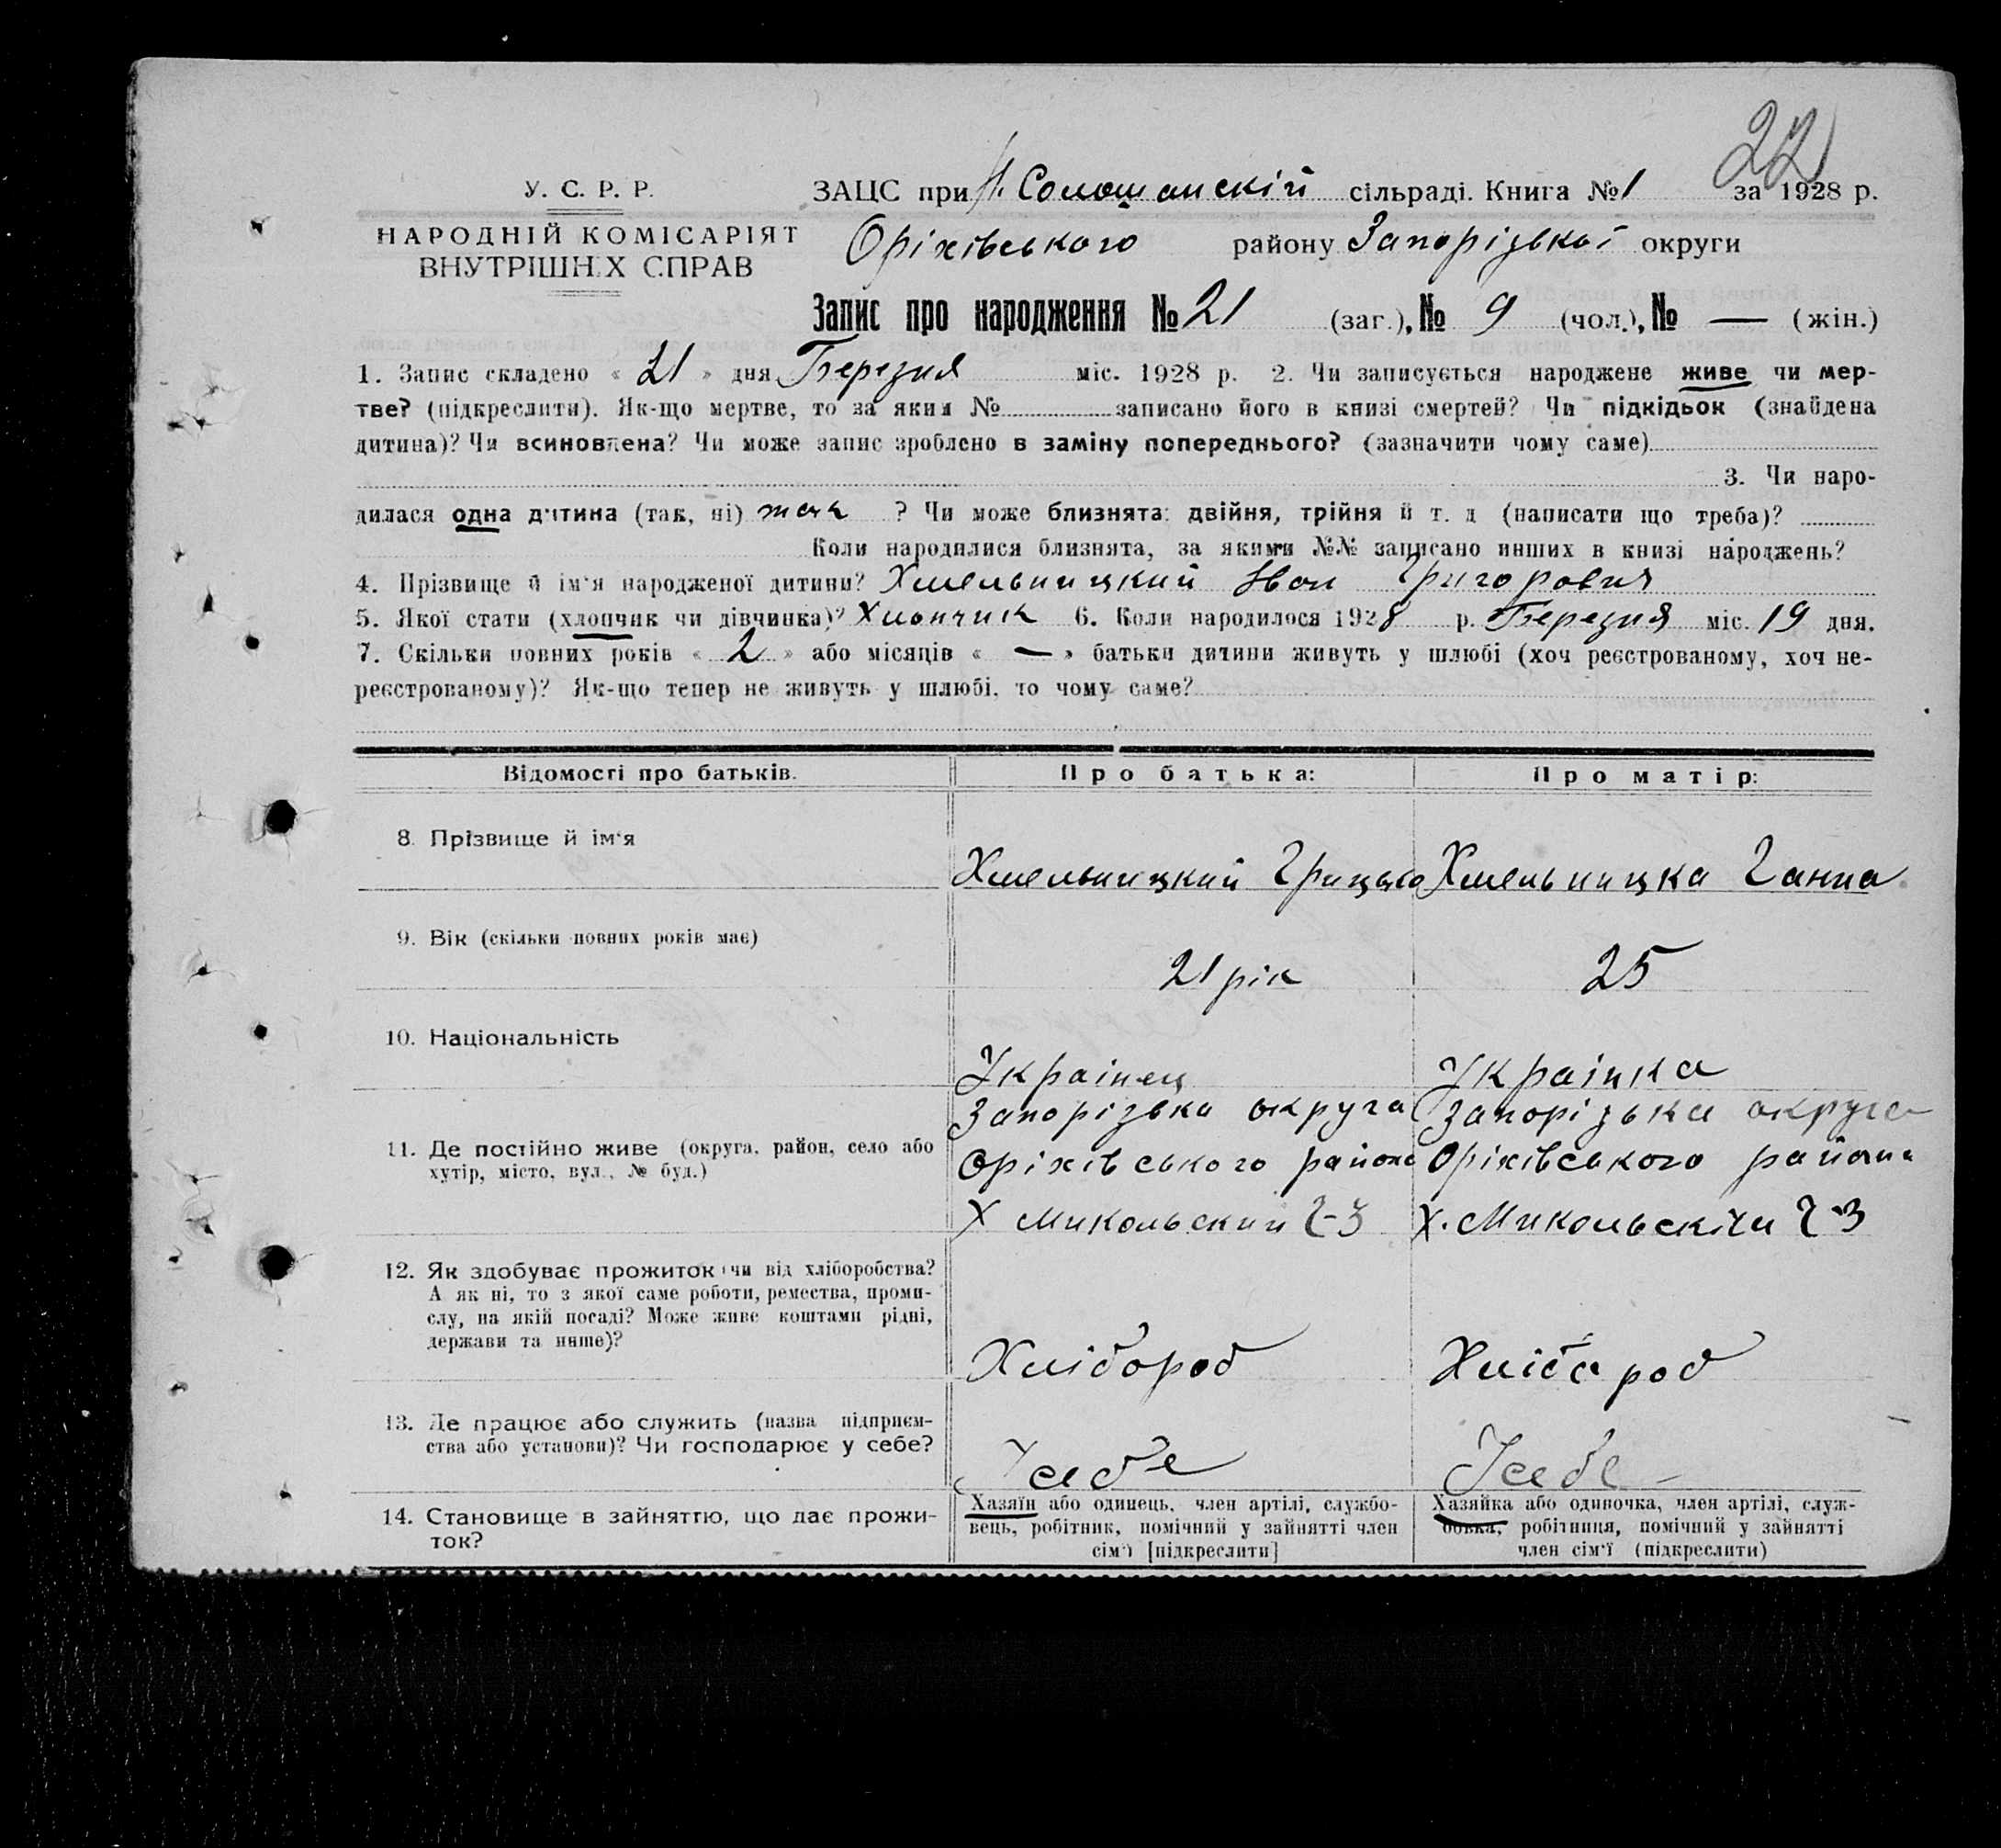 22
У. С. Р. Р.
НАРОДНІЙ КОМІСАРІЯТ
ВНУТРІШНІХ СПРАВ
ЗАЦС при Н. Солошанскій сільраді. Книга №1 за 1928 р.
Оріхівського району Запорізької округи
Запис про народження № 21 (заг.), № 9 (чол.), № — (жін.)
1. Запис складено « 21 » дня Березня міс. 1928 р. 2. Чи записується народжене живе чи мер-
тве? (підкреслити). Як-що мертве, то за яким № записано його в книзі смертей? Чи підкідьок (знайдена
дитина)? Чи всиновлена? Чи може запис зроблено в заміну попереднього? (зазначити чому саме)
3. Чи наро-
дилася одна дитина (так, ні) так ? Чи може близнята: двійня, трійня й т. д (написати що треба)?
Коли народилися близнята, за якими №№ записано инших в книзі народжень?
4. Прізвище й ім'я народженої дитини? Хмельницкий Іван Григоровия
5. Якої стати (хлопчик чи дівчинка)? Хлопчик 6. Коли народилося 1928 р. Березня міс. 19 дня.
7. Скільки повних років « 2 » або місяців « — » батьки дитини живуть у шлюбі (хоч реєстрованому, хоч не-
реєстрованому)? Як-що тепер не живуть у шлюбі, то чому саме?
Відомості про батьків. Про батька: Про матір:
8. Прізвище й ім'я
Хмельницкий Грицько Хмельницка Ганна
9. Вік (скільки повних років має)
21 рік 25
10. Національність
Українец Українка
11. Де постійно живе (округа, район, село або
хутір, місто, вул., № буд.)
Запорізька округа Запорізька округа
Оріхівського района Оріхівського района
Х Микольский 2-3 Х. Микольскій 2-3
12. Як здобуває прожиток (чи від хліборобства?
А як ні, то з якої саме роботи, ремества, проми-
слу, на якій посаді? Може живе коштами рідні,
держави та инше)?
Хлібороб Хлібароб
13. Де працює або служить (назва підприєм-
ства або установи)? Чи господарює у себе?
У себе У себе
14. Становище в зайняттю, що дає прожи-
ток?
Хазяїн або одинець, член артілі, службо-
вець, робітник, помічний у зайнятті член
сім'ї [підкреслити]
Хазяйка або одиночка, член артілі, служ-
бовка, робітниця, помічний у зайнятті
член сім'ї (підкреслити)